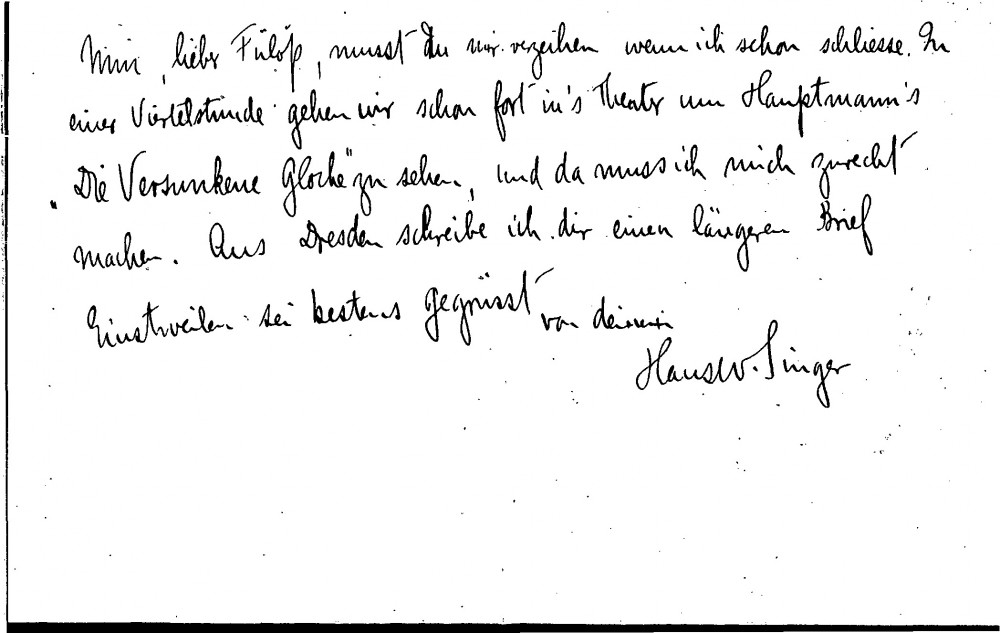 Nun, lieber Fülöp, musst Du mir verzeihen wenn ich schon schliesse. In
einer Viertelstunde gehen wir schon fort in's Theater um Hauptmann's
„Die Versunkene Glocke" zu sehen, und da muss ich mich zurecht
machen. Aus Dresden schreibe ich dir einen längeren Brief
Einstweilen sei bestens gegrüsst von deinem
Hans W. Singer